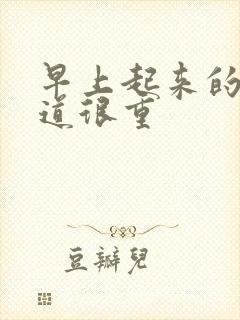 早上起来的
道很重
豆瓣兒